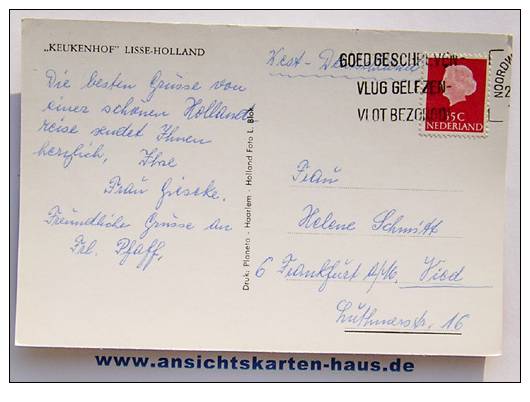 „KEUKENHOF" LISSE-HOLLAND
Die besten Grüsse von
einer schönen Holland
reise sendet Ihnen
herzlich, Ihre
Frau Giescke.
Freundliche Grüsse an
Frl. Pfaff.
Druk: Planeta - Haarlem - Holland Foto L. Blok
West-
GOED GESCHREVEN-
VLUG GELEZEN-
VLOT BEZORGD
NOORDW
2
35C
NEDERLAND
Frau
Helene Schmitt
6 Frankfurt a/M. Nied
Luthmerstr. 16
www.ansichtskarten-haus.de